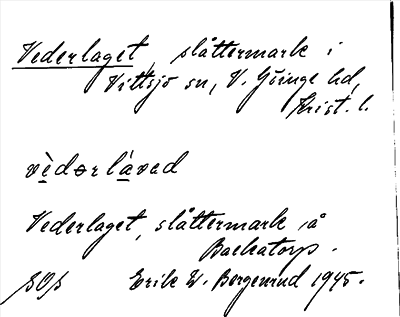 Vederlaget, slåttermark i
Vittsjö sn, V. Göinge hd,
Krist. l.
vèdərlàvəd
Vederlaget, slåttermark å
Backatorp.
Erik W. Borgenrud 1945.